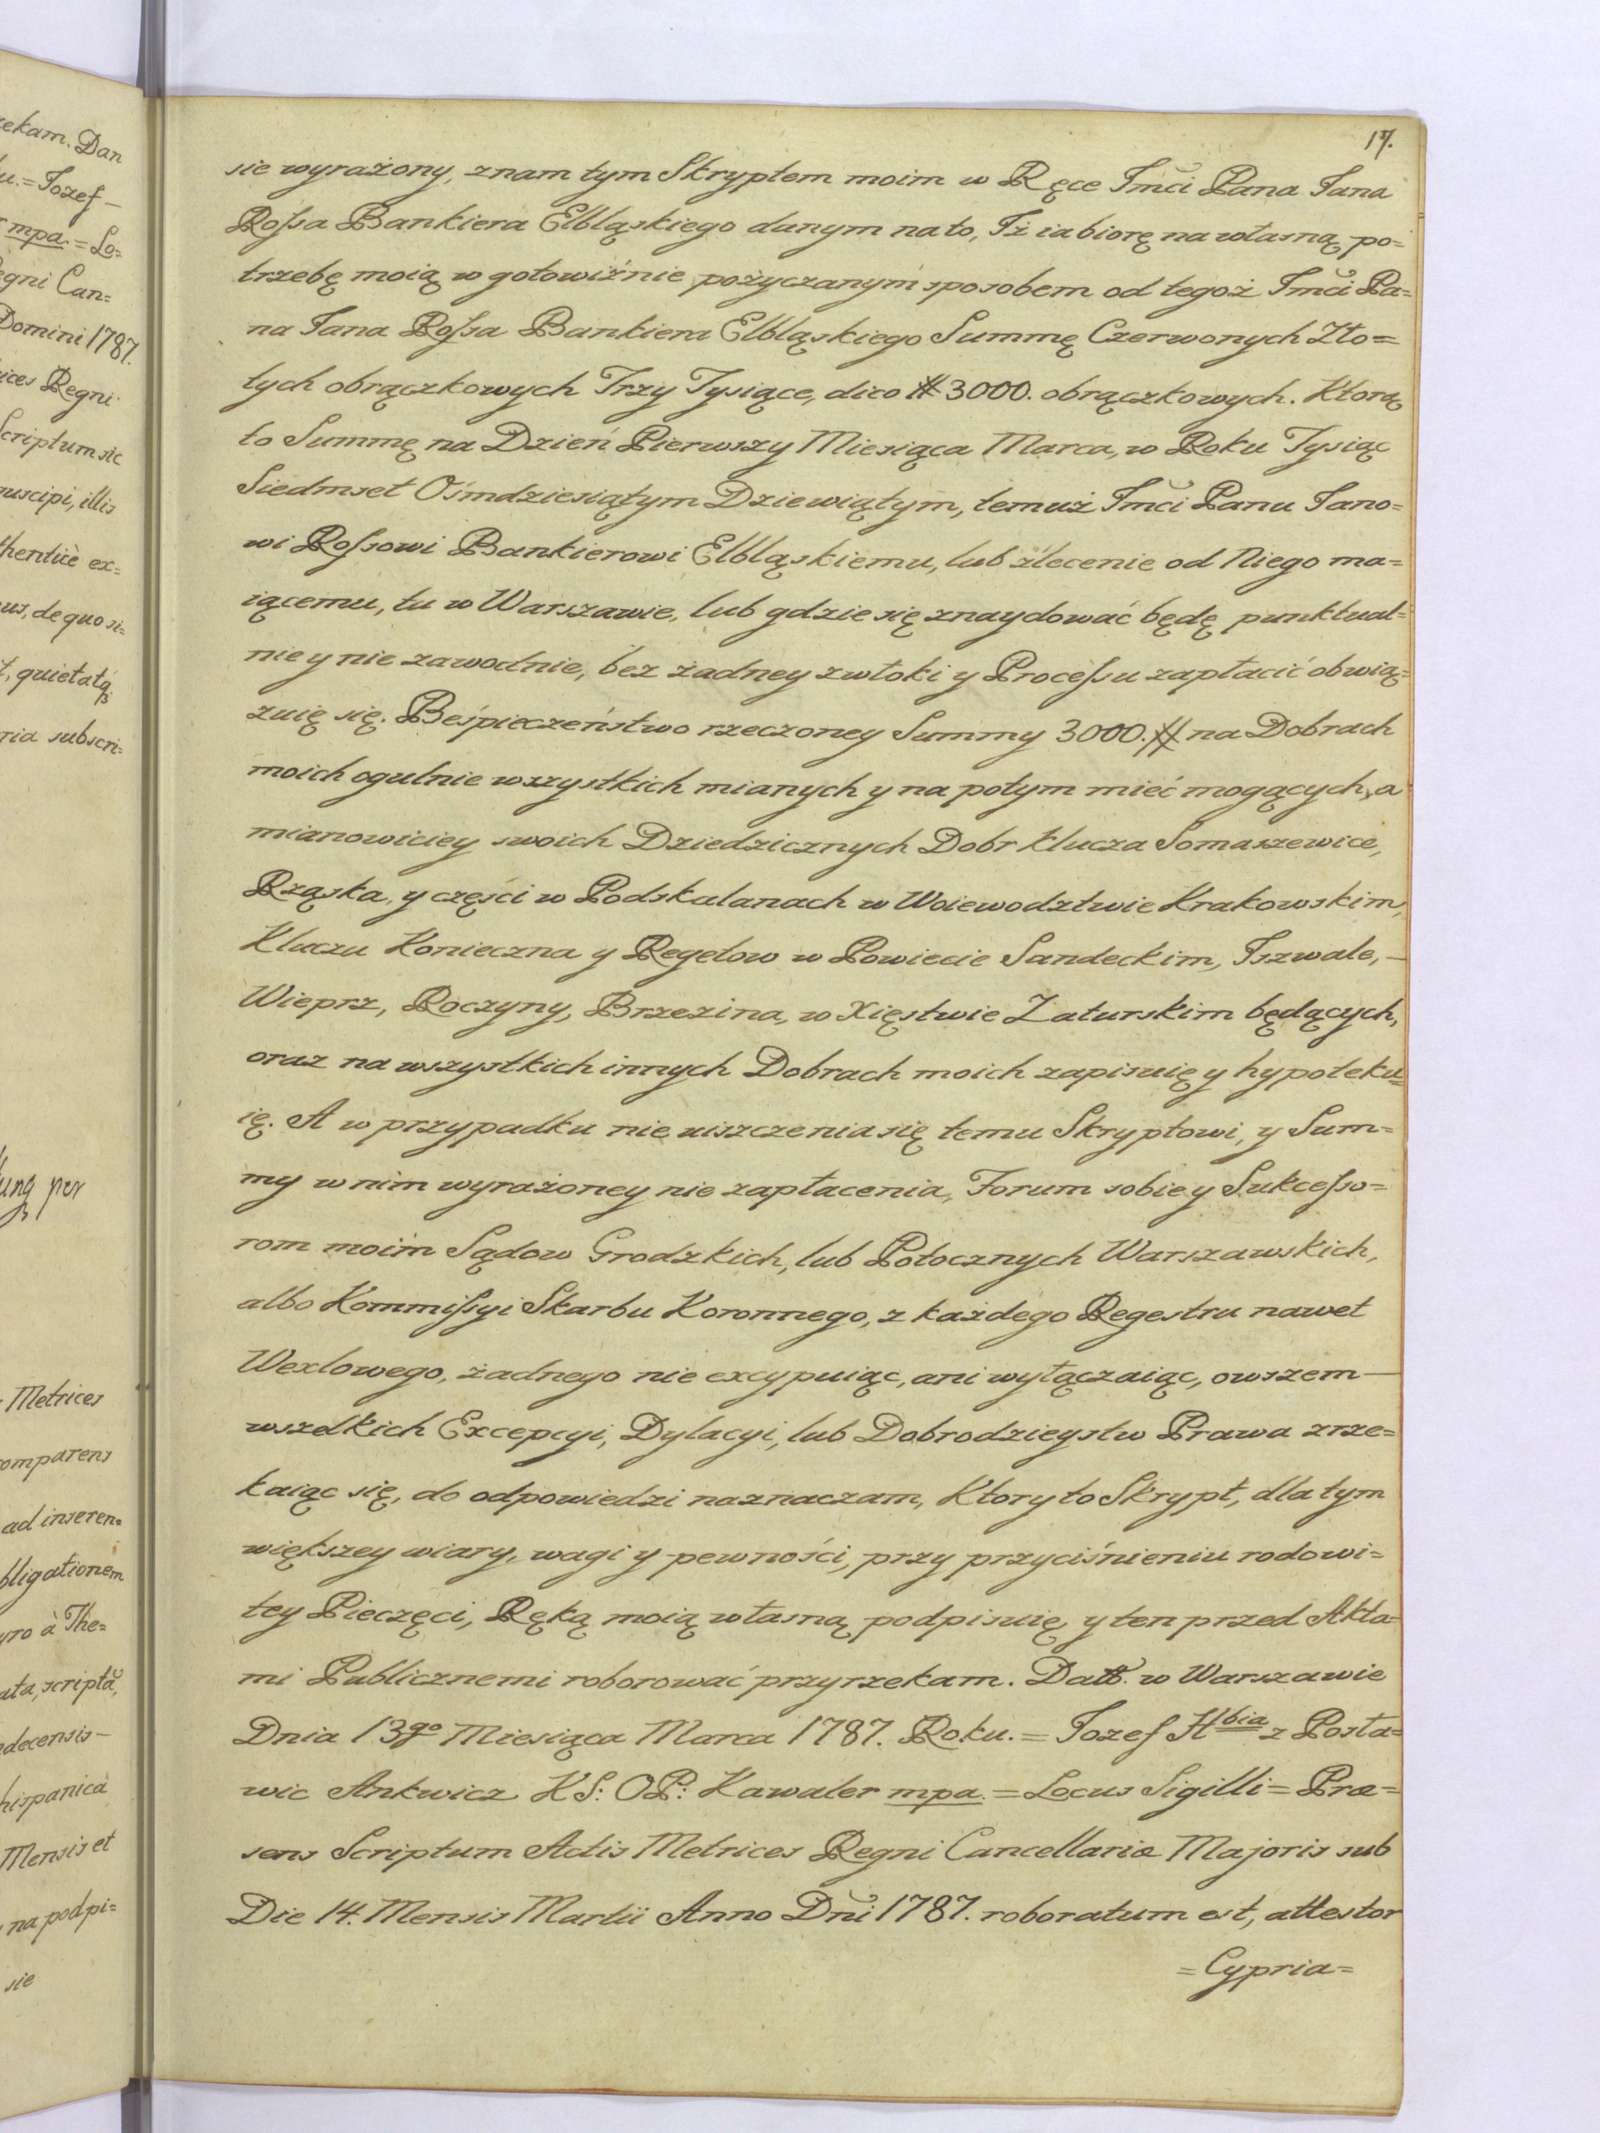 17.
sie wyrażony, znam tym Skryptem moim w Ręce Jmći Pana Jana
Roſsa Bankiera Elbląskiego danym na to, Iż ia biorę na własną po=
trzebę moią w gotowiźnie pożyczanym sposobem od tegoż Jmći Pa=
na Jana Roſsa Bankiera Elbląskiego Summę Czerwonych Zło=
tych obrączkowych Trzy Tysiące, dico # 3000. obrączkowych. Ktorą
to Summę na Dzień Pierwszy Miesiąca Marca, w Roku Tysiąc
Siedmset Ośmdziesiątym Dziewiątym, temuż Jmći Panu Jano=
wi Roſsowi Bankierowi Elbląskiemu, lub zlecenie od Niego ma=
iącemu, tu w Warszawie, lub gdzie się znaydować będę punktual=
nie y nie zawodnie, bez żadney zwłoki y Proceſsu zapłacić obwią=
zuię się. Beśpieczeństwo rzeczoney Summy 3000. # na Dobrach
moich ogulnie wszystkich mianych y na potym mieć mogących, a
mianowiciey swoich Dziedzicznych Dobr klucza Somaszewice,
Rząska, y części w Podskalanach w Woiewodztwie Krakowskim,
Kluczu Konieczna y Regetow w Powiecie Sandeckim, Jszwale,—
Wieprz, Roczyny, Brzezina, w Xięstwie Zaturskim będących,
oraz na wszystkich innych Dobrach moich zapisuię y hypoteku=
ię. A w przypadku nie uiszczenia się temu Skryptowi, y Sum=
my w nim wyrażoney nie zapłacenia, Forum sobie y Sukceſso=
rom moim Sądow Grodzkich, lub Potocznych Warszawskich,
albo Kommiſsyi Skarbu Koronnego, z każdego Regestru nawet
Wexlowego, żadnego nie excypuiąc, ani wyłączaiąc, owszem—
wszelkich Excepcyi, Dylacyi, lub Dobrodzieystw Prawa zrze=
kaiąc się, do odpowiedzi naznaczam, Ktory to Skrypt, dla tym
większey wiary, wagi y pewności, przy przyciśnieniu rodowi=
tey Pieczęci, Ręką moią własną podpisuię y ten przed Akta=
mi Publicznemi roborować przyrzekam. Datt. w Warszawie
Dnia 13go Miesiąca Marca 1787. Roku. = Jozef Hbia z Posta=
wic Ankwicz KS: OP: Kawaler mpa. = Locus Sigilli = Præ=
sens Scriptum Actis Metrices Regni Cancellariæ Majoris sub
Die 14. Mensis Martii Anno Dñi 1787. roboratum est, attestor
= Cypria=
zekam. Dan
= Jozef —
mpa. = Lo=
Regni Can=
Domini 1787.
Regni
Scriptum sic
suscipi, illis
ex=
de quo si=
quietatą
subscri=
per
Metrices
comparens
ad inseren=
bligationem
à The=
Mensis et
na podpi=
sie